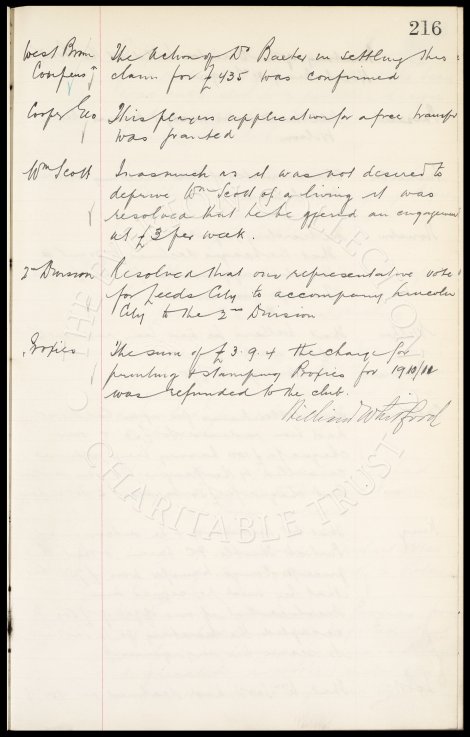 216
West Brom The action of Dr Baxter in settling this
Compens n claim for £435 was confirmed
Cooper Geo This players application for a free transfer
was granted
Wm Scott Inasmuch as it was not desired to
deprive Wm Scott of a living it was
resolved that he be offered an engagement
at £3 per week.
2nd Division Resolved that our representative vote
for Leeds City to accompany Lincoln
City to the 2nd Division
Proxies The sum of £3.9.4 the charge for
printing & stamping Proxies for 1910/11
was refunded to the club.
William Whitford
THE EVERTON COLLECTION
CHARITABLE TRUST